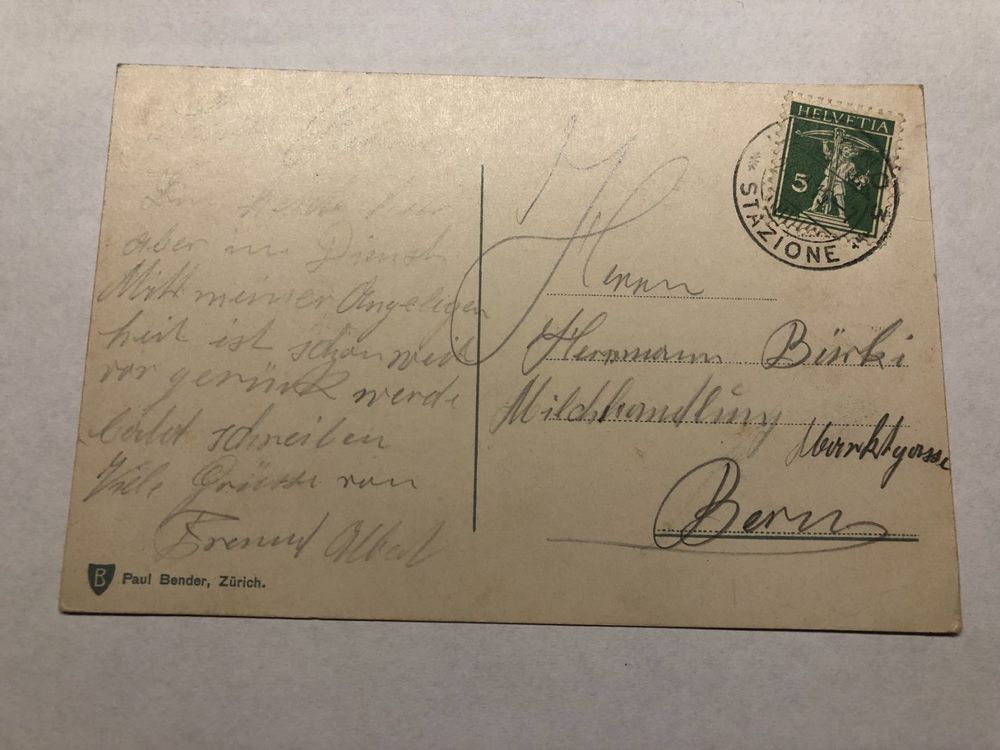 aber im Dienst
Mitt meiner Angelegen
heit ist schon weit
vor gerückt werde
bald schreiben
Viele Grüsse von
Freund Albert
Paul Bender, Zürich.
HELVETIA
5
STAZIONE
Herrn
Herrmann Bürki
Milchhandlung
Marktgasse
Bern